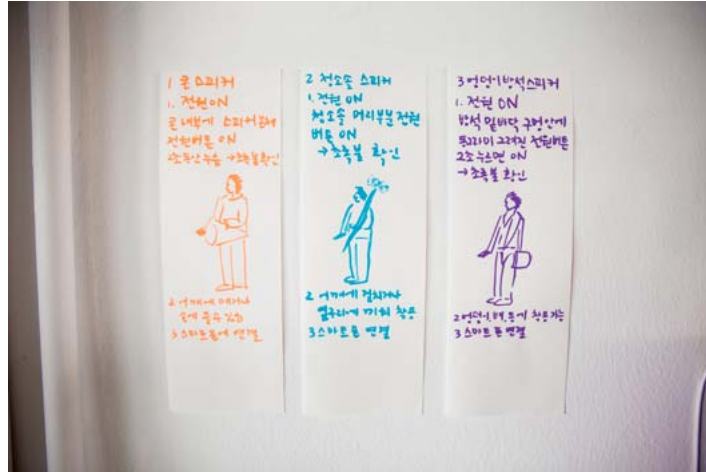 1 콘 스피커
1. 전원 ON
콘 내부에 스피커 꺼내
전원버튼 ON
2초동안 누름 → 초록불 확인
2 어깨에 메거나
손에 들 수 있음
3 스마트폰에 연결
2 청소솔 스피커
1. 전원 ON
청소솔 머리부분 전원
버튼 ON
→ 초록불 확인
2 어깨에 걸치거나
옆구리에 끼워 착용
3 스마트폰 연결
3 엉덩이 방석 스피커
1. 전원 ON
방석 밑바닥 구멍안에
동그라미 그려진 전원버튼
2초 누르면 ON
→ 초록불 확인
2 엉덩이, 배, 등에 착용 가능
3 스마트폰 연결